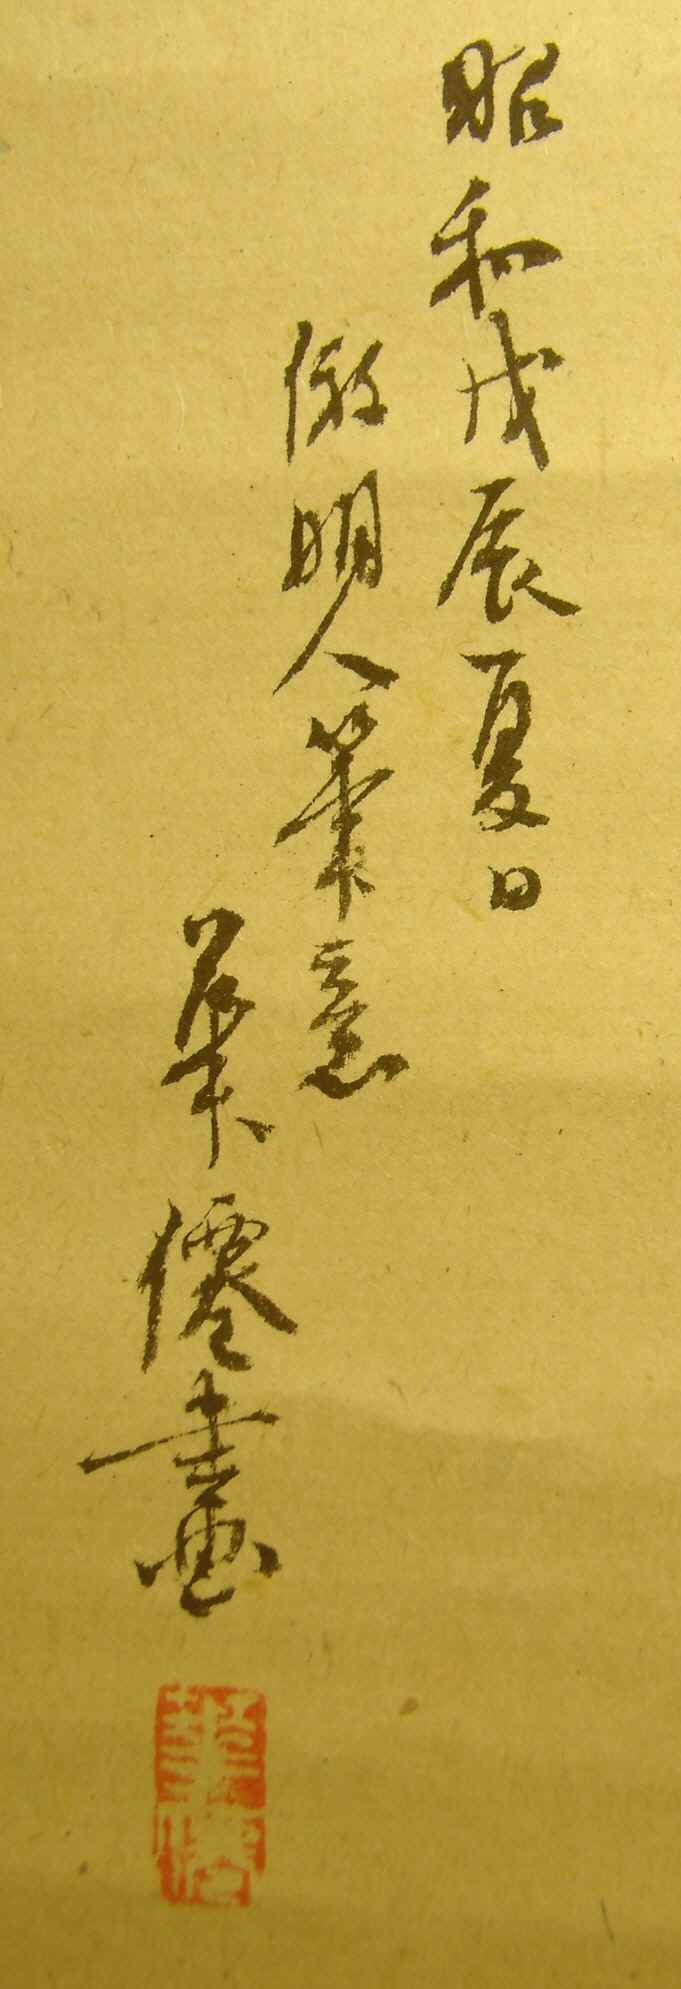 昭和戊辰夏日
倣明人筆意
華僊畫